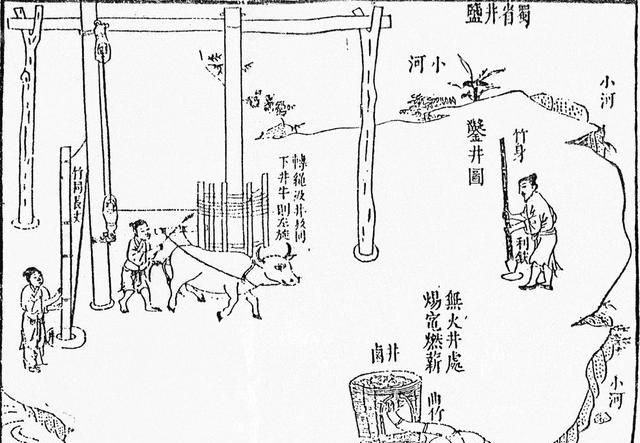 蜀省井鹽
小河
小河
鑿井圖
竹身
利鐵
轉繩汲井
下井牛則左旋
竹同長丈
無火井處
煬竈燃薪
井鹵
曲竹
小河